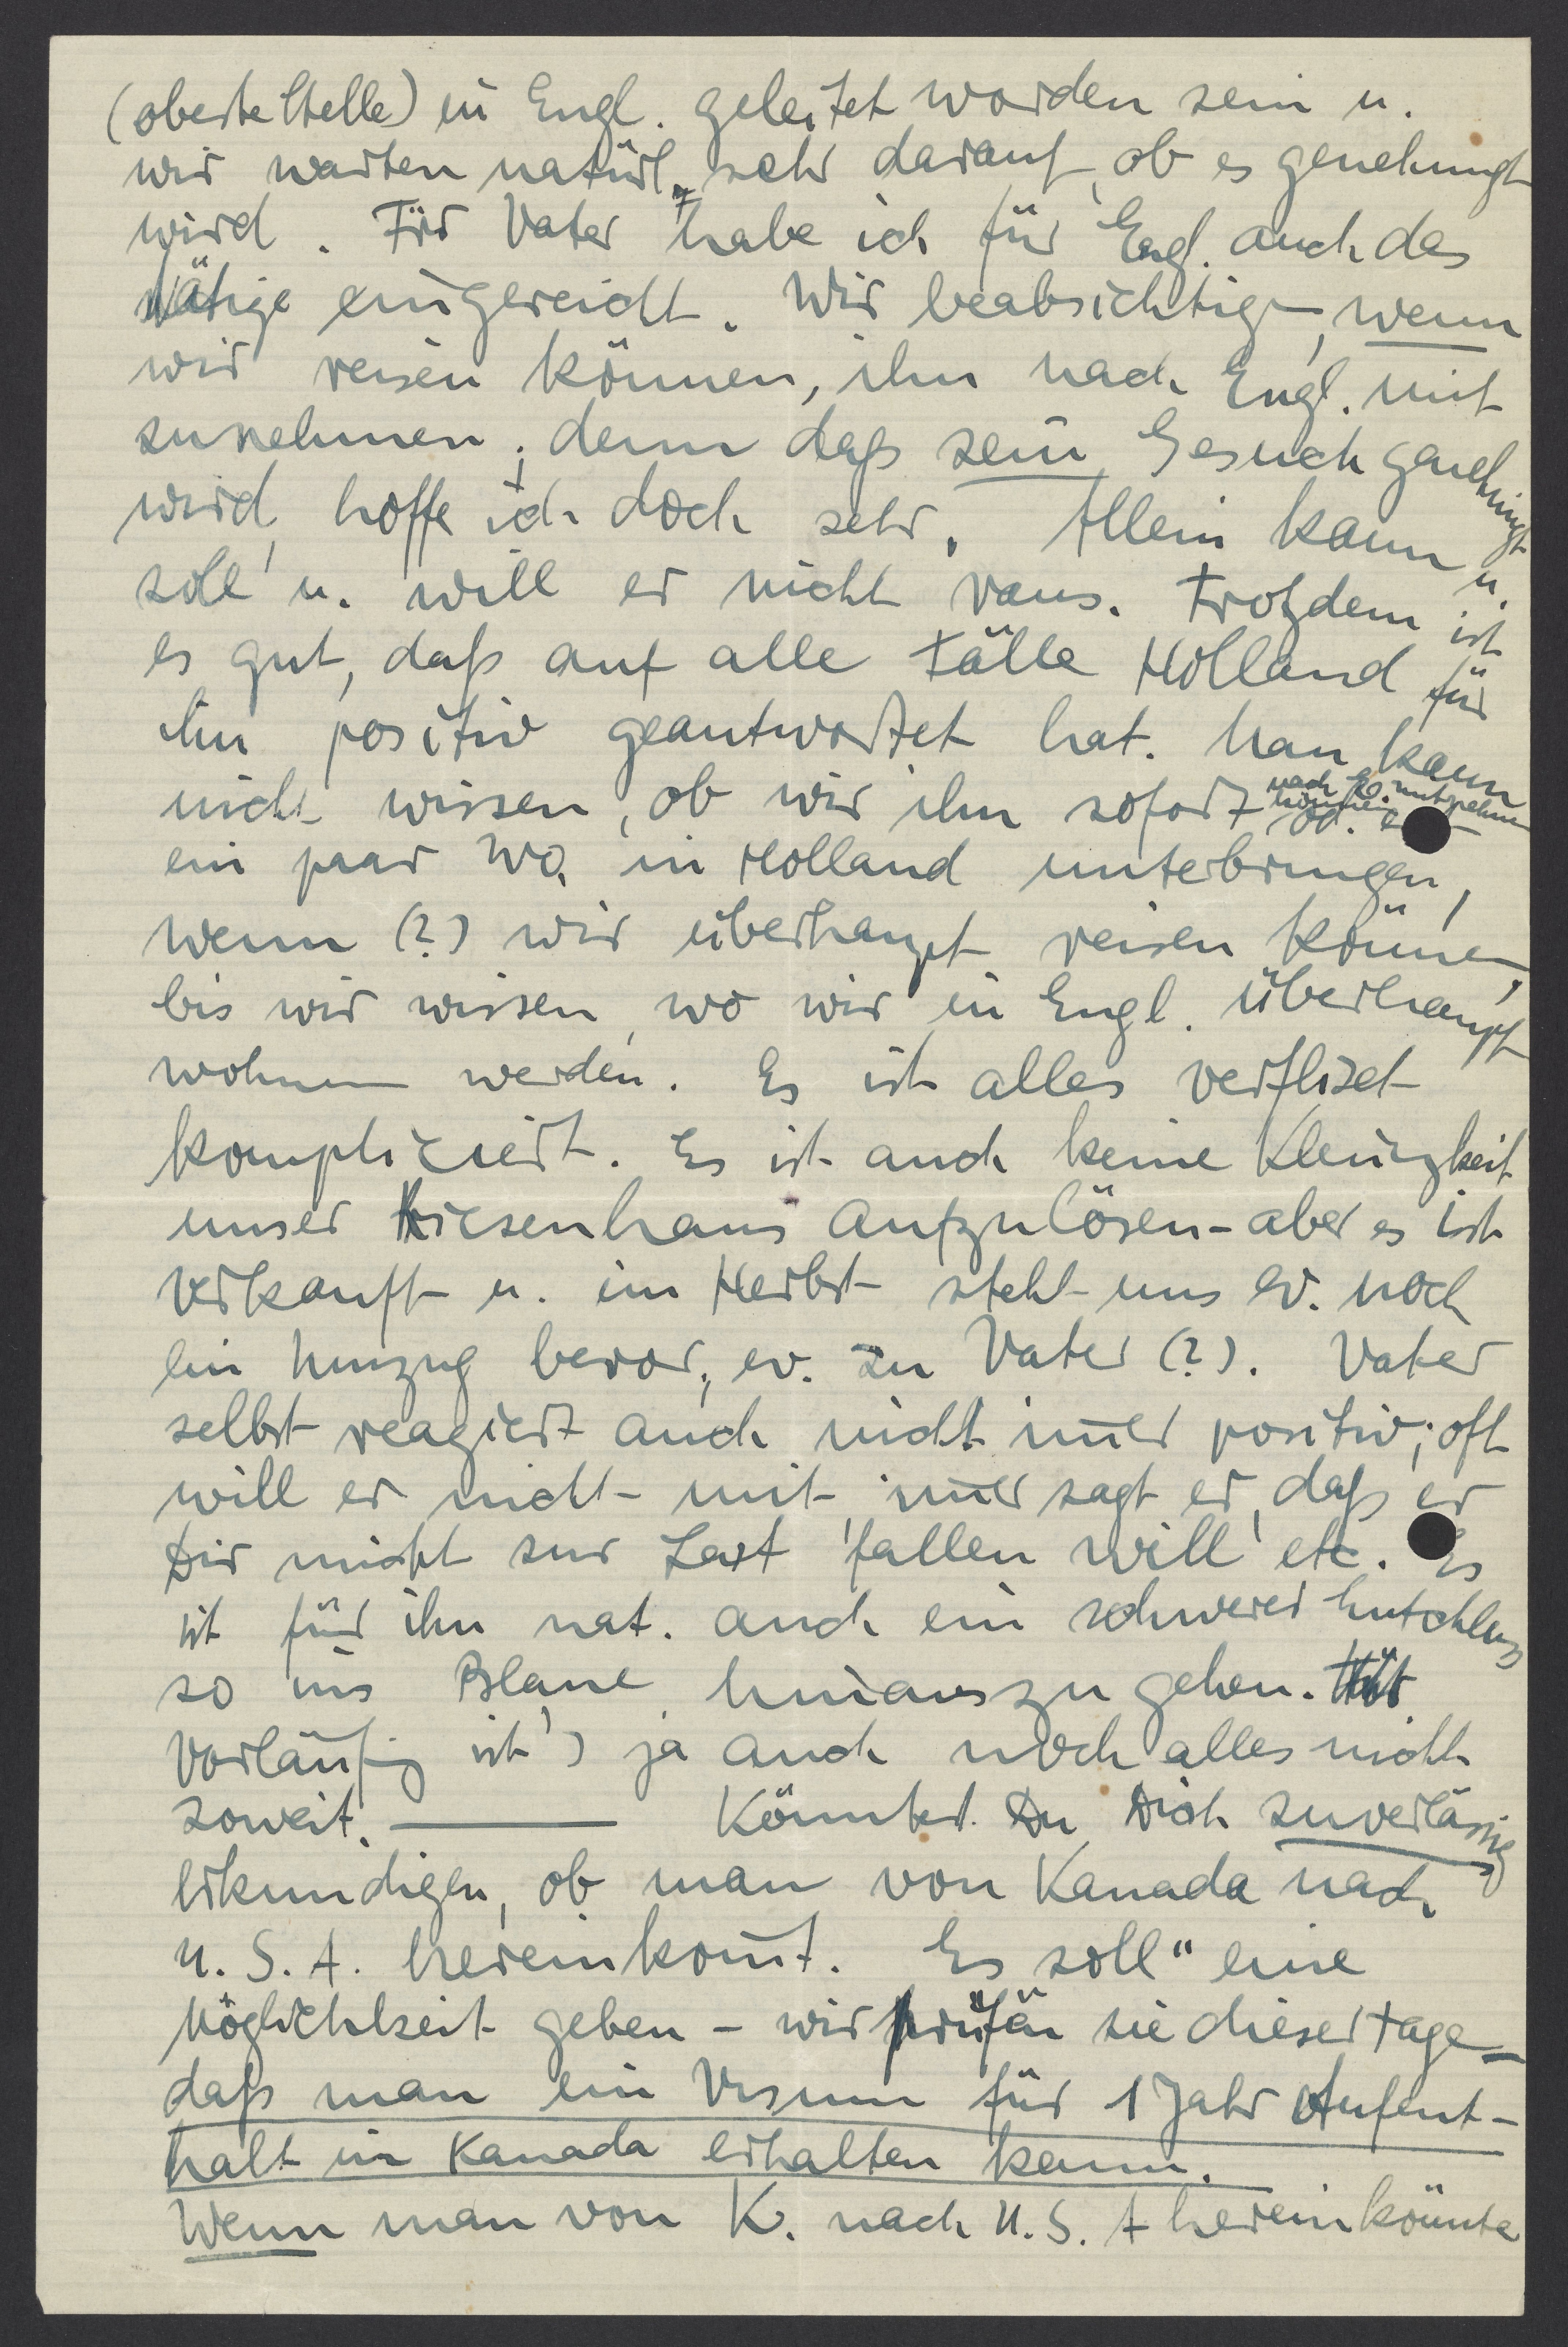 (oberste Stelle) in Engl. geleitet worden sein u.
wir warten natürl. sehr darauf, ob es genehmigt
wird. Für Vater habe ich für Engl. auch das
Nötige eingereicht. Wir beabsichtigen, wenn
wir reisen können, ihn nach Engl. mit
zunehmen; denn daß sein Gesuch genehmigt
wird, hoffe ich doch sehr. Allein kann u.
soll u. will er nicht raus. Trotzdem ist
es gut, daß auf alle Fälle Holland für
ihn positiv geantwortet hat. Man kann
nicht wissen, ob wir ihn sofort nach E. mitnehmen können od.
ein paar Wo. in Holland unterbringen,
wenn (?) wir überhaupt reisen können,
bis wir wissen, wo wir in Engl. überhaupt
wohnen werden. Es ist alles verflixt
kompliziert. Es ist auch keine Kleinigkeit
unser Riesenhaus aufzulösen - aber es ist
verkauft u. im Herbst steht uns ev. noch
ein Umzug bevor, ev. zu Vater (?). Vater
selbst reagiert auch nicht im̅er positiv; oft
will er nicht mit, im̅er sagt er, daß er
Dir nicht zur Last fallen will etc. Es
ist für ihn nat. auch ein schwerer Entschluss
so ins Blaue hinauszugehen.
Vorläufig ist's ja auch noch alles nicht
soweit. — Könntest Du Dich zuverlässig
erkundigen, ob man von Kanada nach
U.S.A. hereinkom̅t. Es soll" eine
Möglichkeit geben - wir prüfen sie dieser Tage -
daß man ein Visum für 1 Jahr Aufent-
halt in Kanada erhalten kann.
Wenn man von K. nach U.S.A hereinkönnte